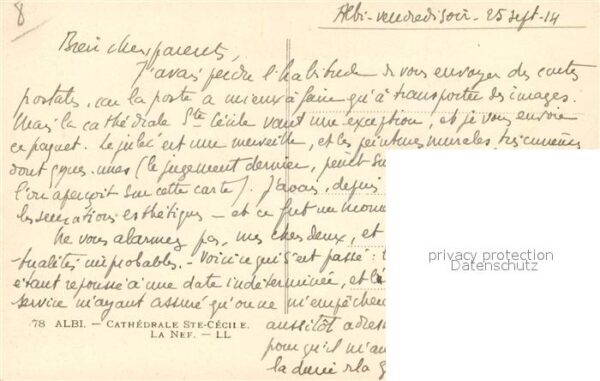 8
Albi - vendredi soir - 25 sept. 14
Bien chers parents,
J'avais perdu l'habitude de vous envoyer des cartes
postales, car la poste a mieux à faire qu'à transporter des images.
Mais la cathédrale Ste Cécile vaut une exception, et je vous envoie
ce paquet. Le jubé est une merveille, et les peintures murales, très curieuses
dont qques-unes (le jugement dernier, peint su
l'on aperçoit sur cette carte). J'avais, depuis
les sensations esthétiques - et ce fut un mome
Ne vous alarmez pas, mes chers deux, et
tualités improbables. - Voici ce qui s'est passé :
étant repoussé à une date indéterminée, et l
service m'ayant assuré qu'on ne m'empêcher
aussitôt adres
pour qu'il m'
la durée de la
78 ALBI. — CATHÉDRALE STE-CÉCILE.
LA NEF. — LL
privacy protection
Datenschutz